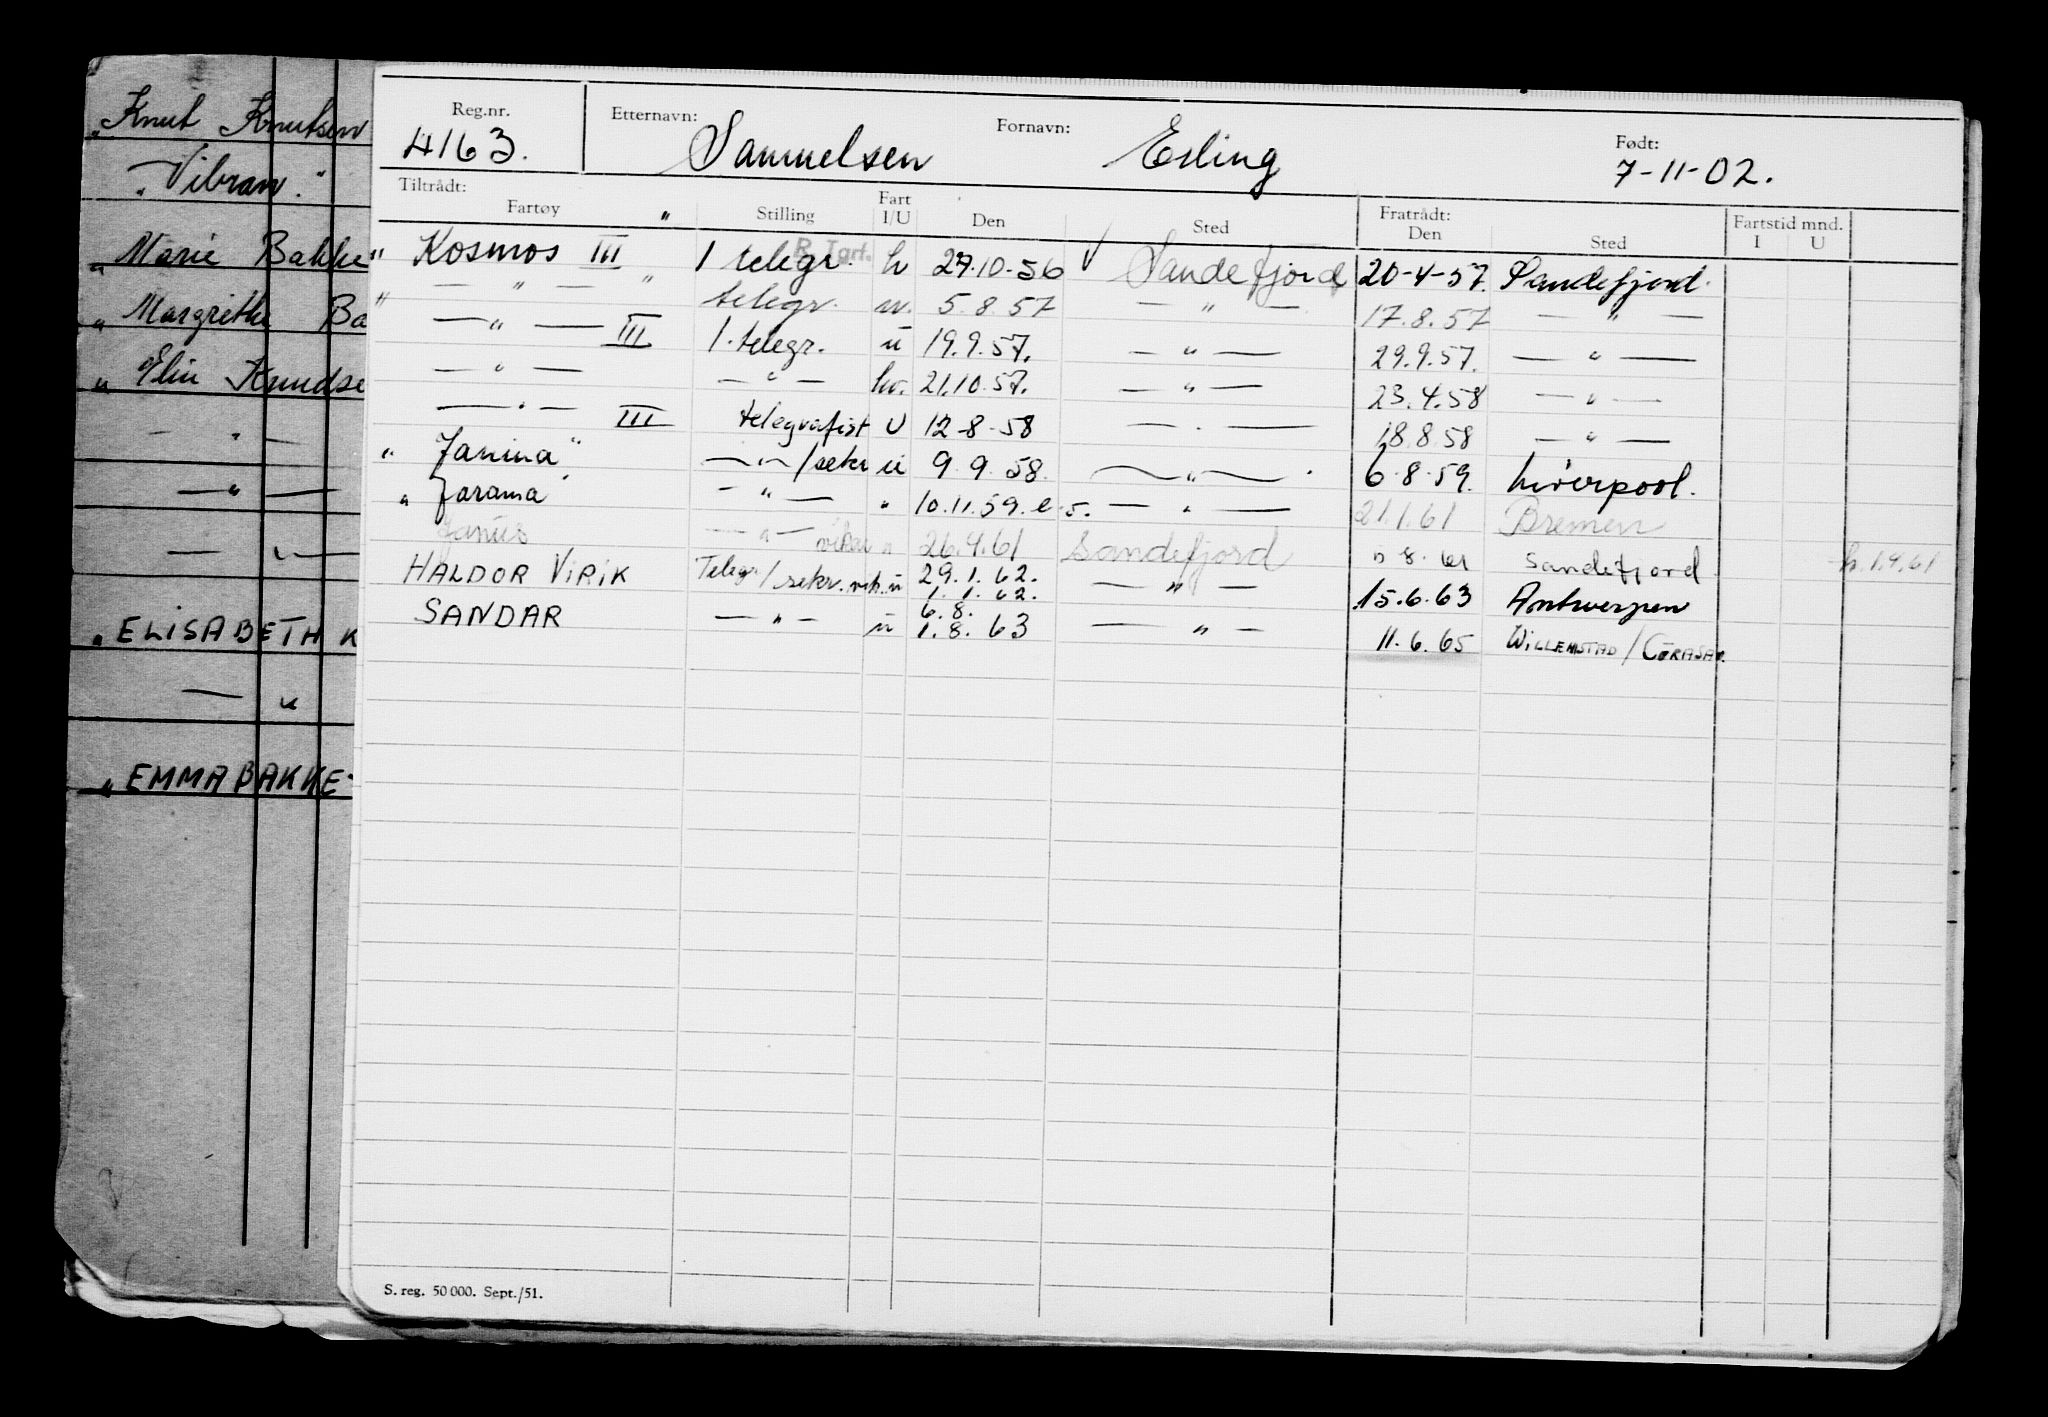 „ Knut Knutsen
„ Vibran."
„ Marie Bakke
„ Margrithe Ba
„ Elin Knudse
— „ —
— „ —
— „ —
„ ELISABETH K
— „
„ EMMA BAKKE
Reg.nr. Etternavn: Fornavn: Født:
4163. Samuelsen Erling 7-11-02.
Tiltrådt: Fratrådt: Fartstid mnd.
Fartøy Stilling Fart I/U Den Sted Den Sted I U
R.Tgrf.
" Kosmos III " 1 telegr. h 27.10-56 √ Sandefjord 20-4-57. Sandefjord.
" — " — " telegr. u. 5.8.57 — " — 17.8.57 — " —
— " — III 1. telegr. ü 19.9.57. — " — 29.9.57. — " —
— " — — " — hv. 21.10.57. — " — 23.4.58 — " —
— " — III telegrafist U 12-8-58 — " — 18.8.58 — " —
" Janina" — " — /sekr ü 9.9.58. — " — 6-8-59. Liverpool.
" Jarama" — " — " 10.11.59. e.s. — " — 21.1.61 Bremen
Janus — " — vikar " 26.4.61 Sandefjord 8.61 Sandefjord h.1.9.61
HALDOR VIRIK Telegr/sekr. ü 29.1.62. — " — 15.6.63 Antwerpen
1.1.62.
SANDAR — " — ü 6.8. — " — 11.6.65 WILLEMSTAD/CURASAO.
1.8.63
S. reg. 50 000. Sept./51.